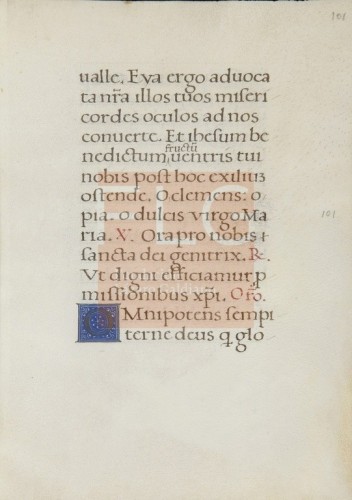 101
ualle. Eya ergo aduoca
ta nr̃a illos tuos miseri
cordes oculos ad nos
conuerte. Et ihesum be
fructũ
nedictum uentris tui
nobis post hoc exiliũ
ostende. O clemens: o
pia. o dulcis virgo Ma
ria. V. Ora pro nobis
sancta dei genitrix. R.
Vt digni efficiamur p
missionibus xp̃i. Or̃o.
Omnipotens sempi
terne deus q̃ glo
101